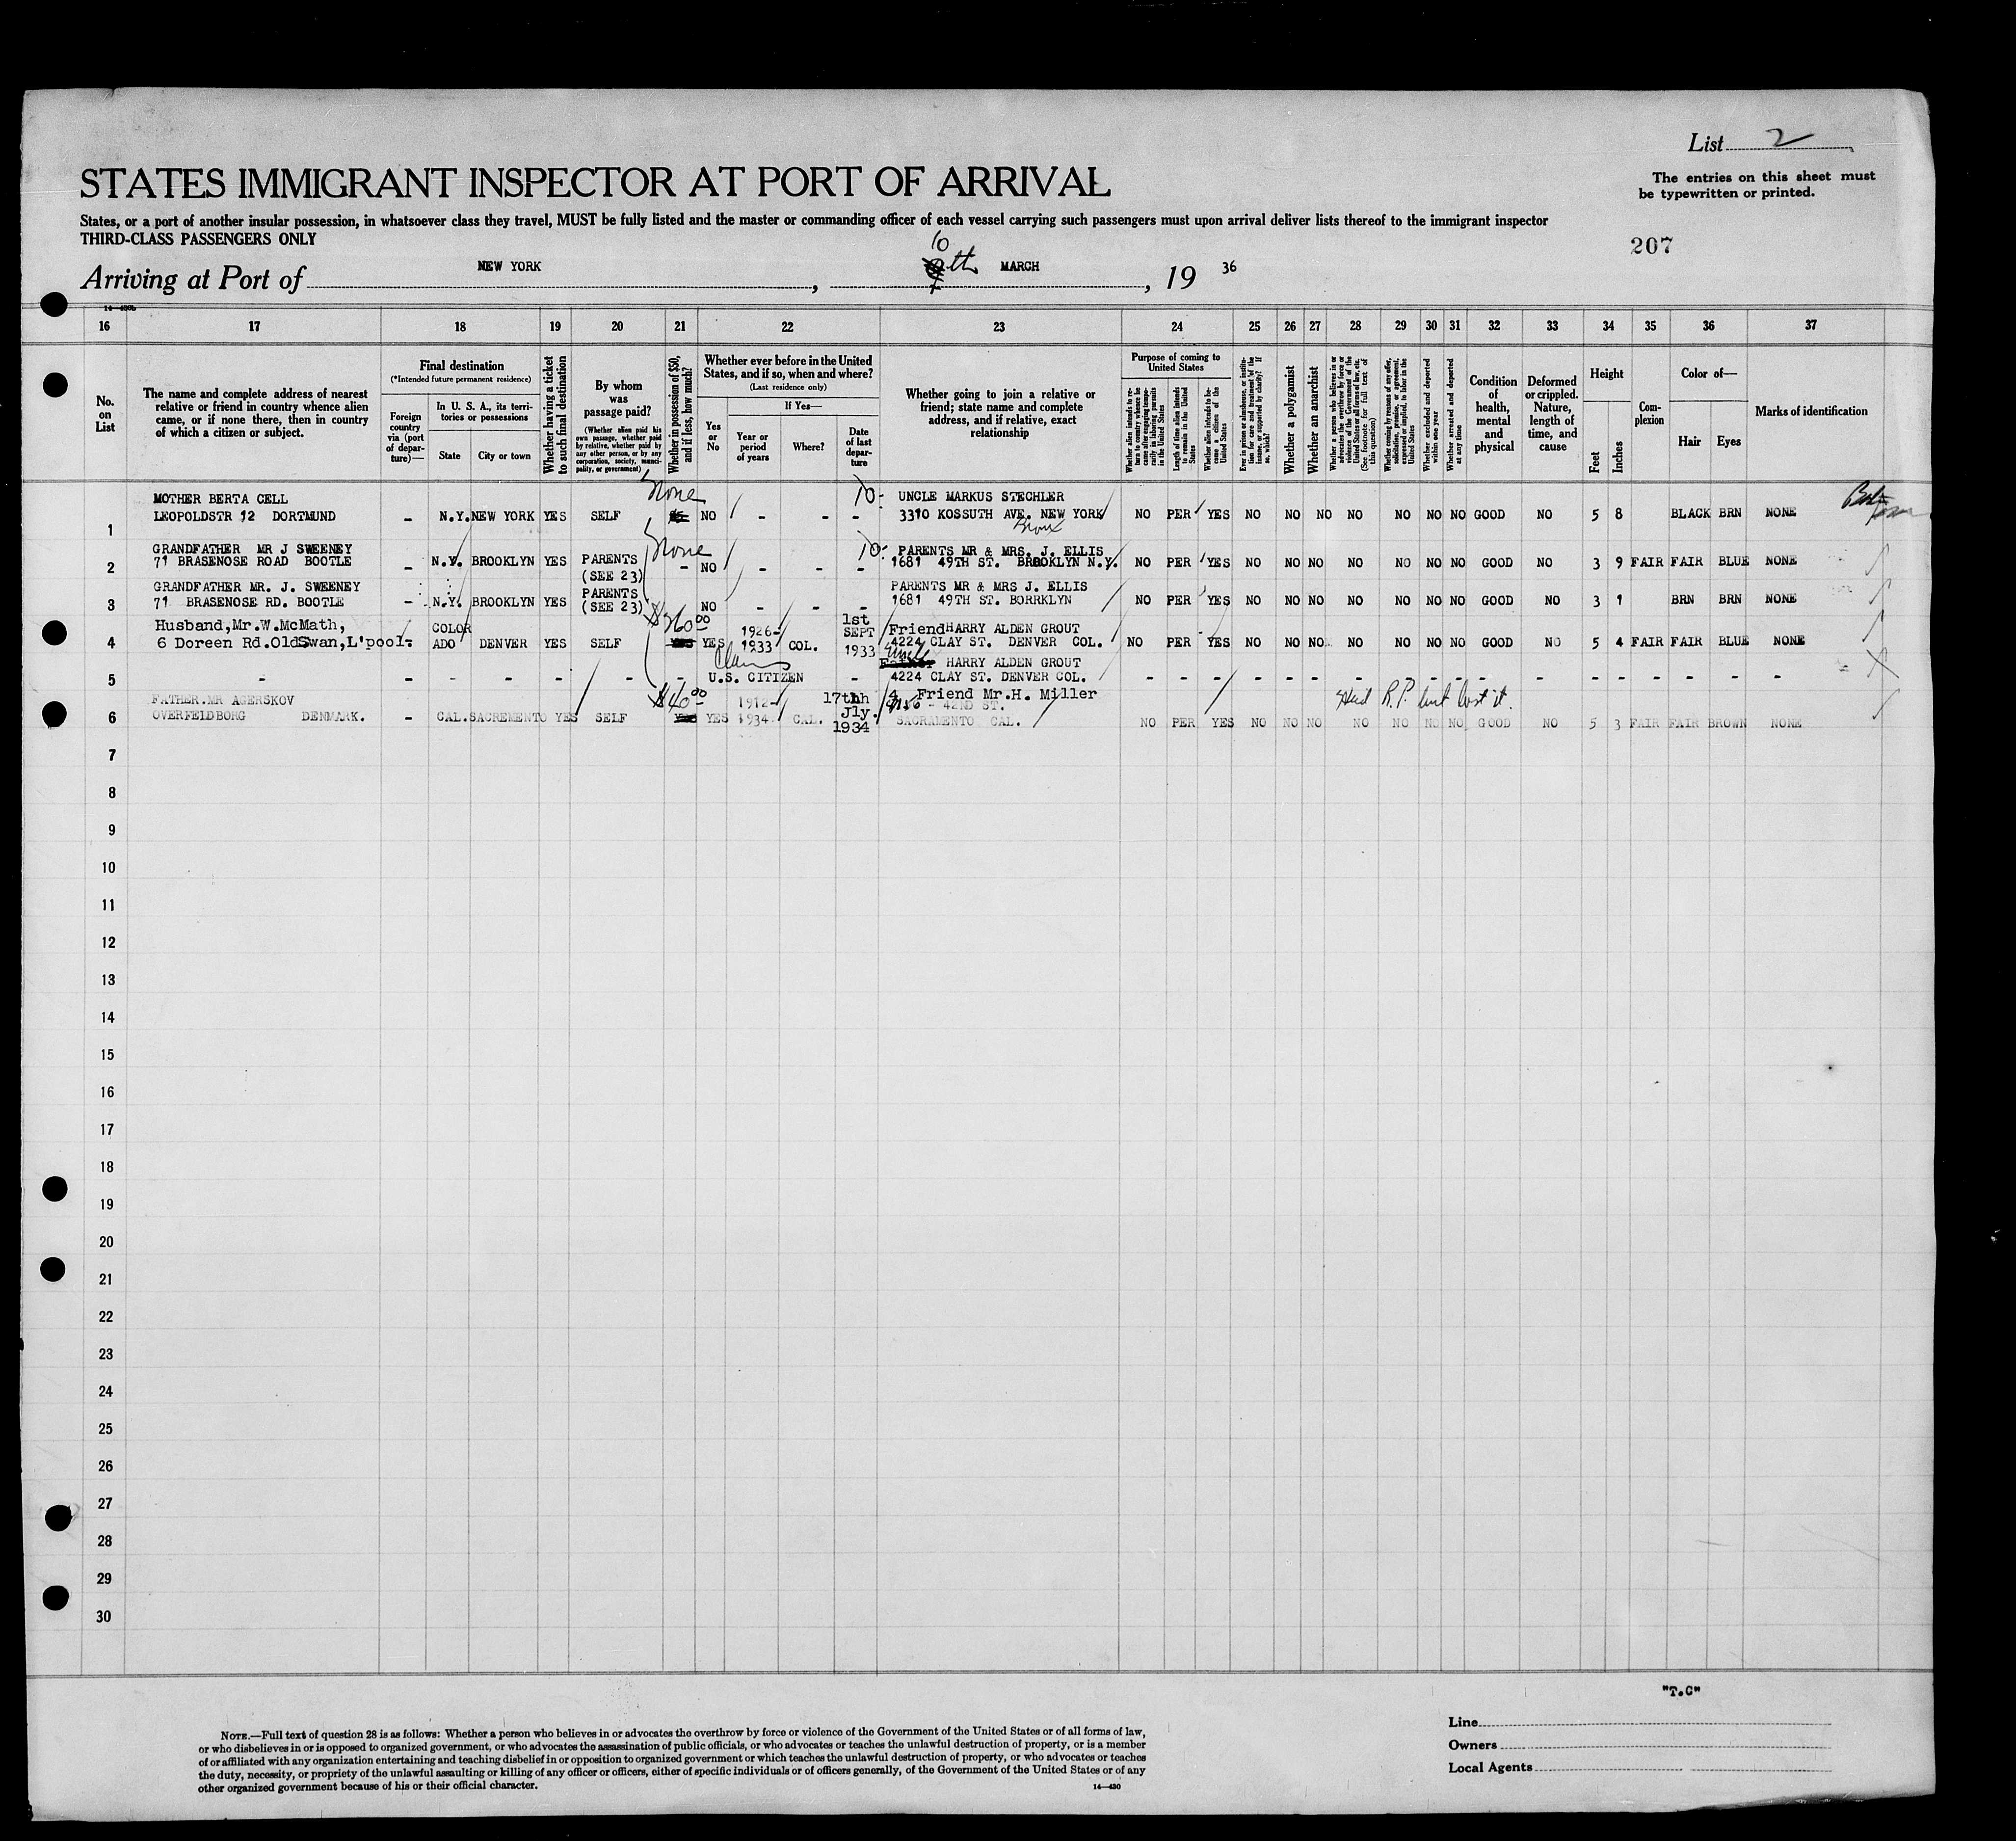 List 2
STATES IMMIGRANT INSPECTOR AT PORT OF ARRIVAL
The entries on this sheet must
be typewritten or printed.
States, or a port of another insular possession, in whatsoever class they travel, MUST be fully listed and the master or commanding officer of each vessel carrying such passengers must upon arrival deliver lists thereof to the immigrant inspector
THIRD-CLASS PASSENGERS ONLY
207
Arriving at Port of NEW YORK, 10 th MARCH, 19 36
16 17 18 19 20 21 22 23 24 25 26 27 28 29 30 31 32 33 34 35 36 37
No. on List
The name and complete address of nearest
relative or friend in country whence alien
came, or if none there, then in country
of which a citizen or subject.
Final destination
(*Intended future permanent residence)
Foreign country via (port of departure)—
In U. S. A., its territories or possessions
State
City or town
Whether having a ticket to such final destination
By whom was passage paid?
(Whether alien paid his own passage, whether paid by relative, whether paid by any other person, or by any corporation, society, municipality, or government)
Whether in possession of $50, and if less, how much?
Whether ever before in the United
States, and if so, when and where?
(Last residence only)
Yes or No
If Yes—
Year or period of years
Where?
Date of last departure
Whether going to join a relative or
friend; state name and complete
address, and if relative, exact
relationship
Purpose of coming to United States
Whether alien intends to return to country whence he came after engaging temporarily in laboring pursuits in the United States
Length of time alien intends to remain in the United States
Whether alien intends to become a citizen of the United States
Ever in prison or almshouse, or institution for care and treatment of the insane, or supported by charity? If so, which?
Whether a polygamist
Whether an anarchist
Whether a person who believes in or advocates the overthrow by force or violence of the Government of the United States or all forms of law, etc. (See footnote for full text of this question)
Whether coming by reason of any offer, solicitation, promise, or agreement, expressed or implied, to labor in the United States
Whether excluded and deported within one year
Whether arrested and deported at any time
Condition of health, mental and physical
Deformed or crippled. Nature, length of time, and cause
Height
Feet
Inches
Complexion
Color of—
Hair
Eyes
Marks of identification
None 10-
MOTHER BERTA CELL UNCLE MARKUS STECHLER
1 LEOPOLDSTR 12 DORTMUND - N.Y. NEW YORK YES SELF NO - - - 3310 KOSSUTH AVE. NEW YORK NO PER YES NO NO NO NO NO NO NO GOOD NO 5 8 BLACK BRN NONE
Bronx
None 10-
GRANDFATHER MR J SWEENEY PARENTS MR & MRS. J. ELLIS
2 71 BRASENOSE ROAD BOOTLE - N.Y. BROOKLYN YES PARENTS (SEE 23) - NO - - - 1681 49TH ST. BROOKLYN N.Y. NO PER YES NO NO NO NO NO NO NO GOOD NO 3 9 FAIR FAIR BLUE NONE
GRANDFATHER MR. J. SWEENEY PARENTS MR & MRS J. ELLIS
3 71 BRASENOSE RD. BOOTLE - N.Y. BROOKLYN YES PARENTS (SEE 23) NO - - - 1681 49TH ST. BORRKLYN NO PER YES NO NO NO NO NO NO NO GOOD NO 3 1 BRN BRN NONE
Husband,Mr.W.McMath, COLOR $260 00 1926- 1st SEPT Friend HARRY ALDEN GROUT
4 6 Doreen Rd.OldSwan,L'pool. - ADO DENVER YES SELF YES YES 1933 COL. 1933 4224 CLAY ST. DENVER COL. NO PER YES NO NO NO NO NO NO NO GOOD NO 5 4 FAIR FAIR BLUE NONE
Claims Uncle Father HARRY ALDEN GROUT
5 - - - - - - U.S. CITIZEN - 4224 CLAY ST. DENVER COL. - - - - - - - - - - - - - - - - - -
FATHER.MR AGERSKOV $40 00 1912- 17th Jly. Friend Mr.H. Miller
42ND ST. Had R.P. but lost it.
6 OVERFELDBORG DENMARK. - CAL. SACREMENTO YES SELF YES YES 1934 CAL. 1934 SACRAMENTO CAL. NO PER YES NO NO NO NO NO NO NO GOOD NO 5 3 FAIR FAIR BROWN NONE
7
8
9
10
11
12
13
14
15
16
17
18
19
20
21
22
23
24
25
26
27
28
29
30
"T.C"
NOTE.—Full text of question 28 is as follows: Whether a person who believes in or advocates the overthrow by force or violence of the Government of the United States or of all forms of law,
or who disbelieves in or is opposed to organized government, or who advocates the assassination of public officials, or who advocates or teaches the unlawful destruction of property, or is a member
of or affiliated with any organization entertaining and teaching disbelief in or opposition to organized government or which teaches the unlawful destruction of property, or who advocates or teaches
the duty, necessity, or propriety of the unlawful assaulting or killing of any officer or officers, either of specific individuals or of officers generally, of the Government of the United States or of any
other organized government because of his or their official character.
14—430
Line
Owners
Local Agents